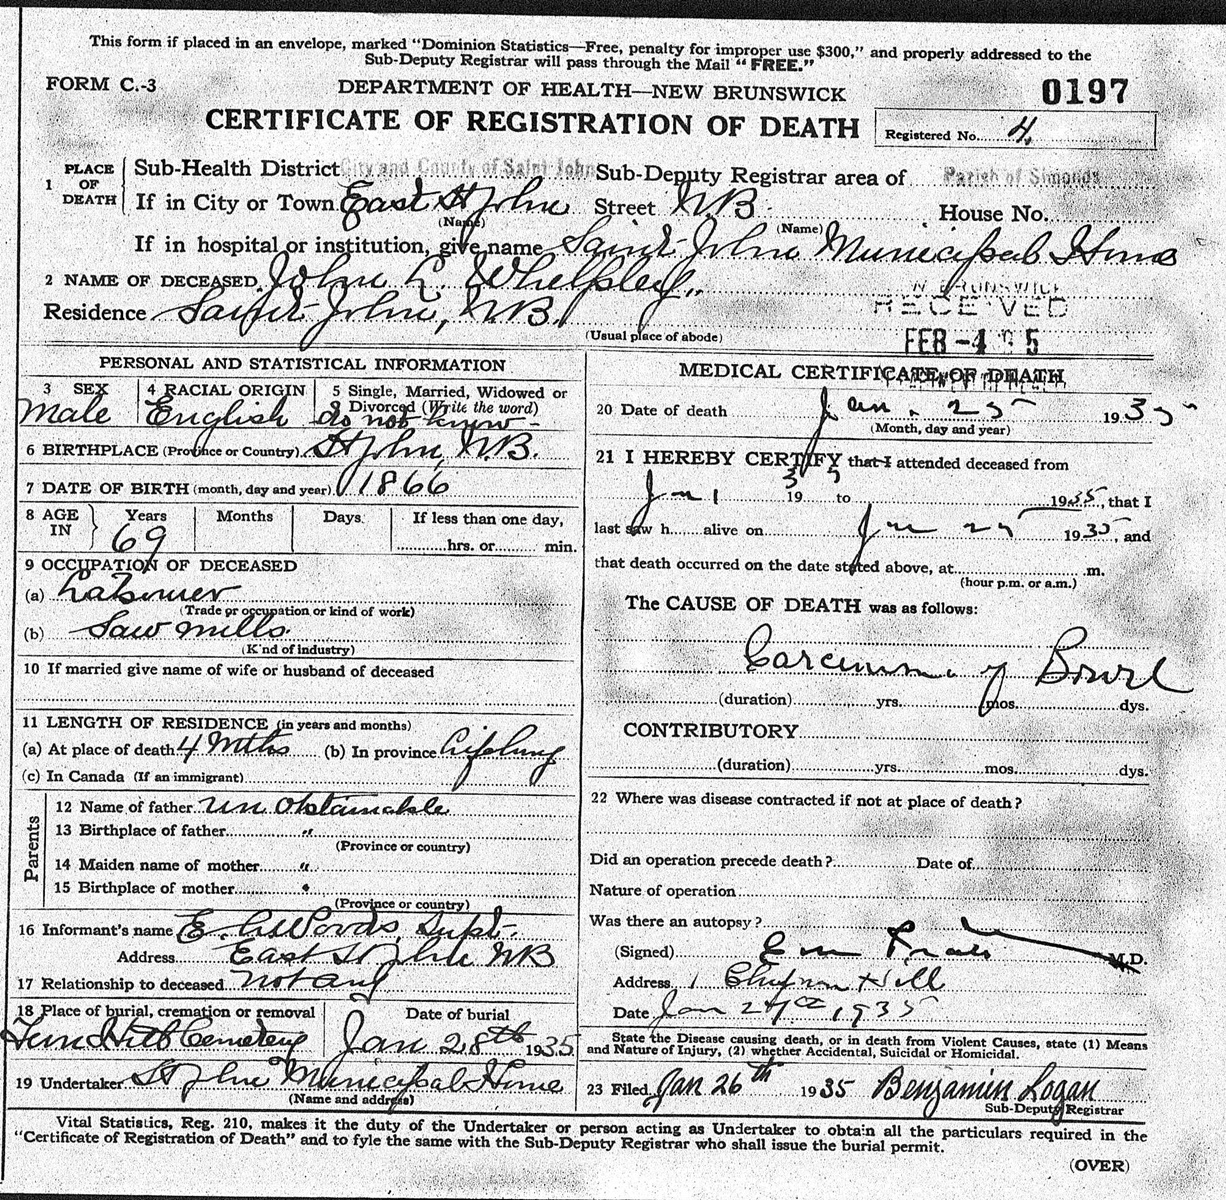 This form if placed in an envelope, marked "Dominion Statistics—Free, penalty for improper use $300," and properly addressed to the
Sub-Deputy Registrar will pass through the Mail "FREE."
FORM C.-3
DEPARTMENT OF HEALTH—NEW BRUNSWICK
0197
CERTIFICATE OF REGISTRATION OF DEATH
Registered No. 4
1 PLACE OF DEATH
Sub-Health District City and County of Saint John Sub-Deputy Registrar area of Parish of Simonds
If in City or Town East St John Street N.B. House No.
(Name) (Name)
If in hospital or institution, give name Saint John Municipal Home
2 NAME OF DECEASED John L. Whelpley
Residence Saint John, N.B.
(Usual place of abode)
RECEIVED
FEB -4
PERSONAL AND STATISTICAL INFORMATION
3 SEX Male
4 RACIAL ORIGIN English
5 Single, Married, Widowed or Divorced (Write the word) do not know
6 BIRTHPLACE (Province or Country) St John, N.B.
7 DATE OF BIRTH (month, day and year) 1866
8 AGE IN Years Months Days. If less than one day,
69 hrs. or min.
9 OCCUPATION OF DECEASED
(a) Labourer
(Trade or occupation or kind of work)
(b) Saw mills
(Kind of industry)
10 If married give name of wife or husband of deceased
11 LENGTH OF RESIDENCE (in years and months)
(a) At place of death 4 Mths (b) In province Lifelong
(c) In Canada (If an immigrant)
Parents
12 Name of father unobtainable
13 Birthplace of father "
(Province or country)
14 Maiden name of mother "
15 Birthplace of mother "
(Province or country)
16 Informant's name E. Supt.
Address East St John NB
17 Relationship to deceased not any
18 Place of burial, cremation or removal Date of burial
Fern Hill Cemetery Jan 28th 1935
19 Undertaker St John Municipal Home
(Name and address)
MEDICAL CERTIFICATE OF DEATH
20 Date of death Jan. 25 1935
(Month, day and year)
21 I HEREBY CERTIFY that I attended deceased from
Jan 1 1935 to 1935, that I
last saw h alive on Jan 25 1935, and
that death occurred on the date stated above, at m.
(hour p.m. or a.m.)
The CAUSE OF DEATH was as follows:
Carcinoma of Bowel
(duration) yrs. mos. dys.
CONTRIBUTORY
(duration) yrs. mos. dys.
22 Where was disease contracted if not at place of death?
Did an operation precede death? Date of
Nature of operation
Was there an autopsy?
(Signed) M.D.
Address Hill
Date Jan 27th 1935
State the Disease causing death, or in death from Violent Causes, state (1) Means
and Nature of Injury, (2) whether Accidental, Suicidal or Homicidal.
23 Filed Jan 26th 1935 Benjamin Logan
Sub-Deputy Registrar
Vital Statistics, Reg. 210, makes it the duty of the Undertaker or person acting as Undertaker to obtain all the particulars required in the
"Certificate of Registration of Death" and to fyle the same with the Sub-Deputy Registrar who shall issue the burial permit.
(OVER)